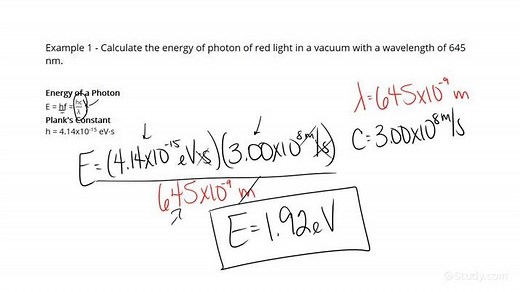 Example 1 - Calculate the energy of photon of red light in a vacuum with a wavelength of 645
nm.
Energy of a Photon
E = hf = hc/λ
Plank's Constant
h = 4.14x10⁻¹⁵ eV·s
λ=645x10⁻⁹ m
C=3.00x10⁸ m/s
E=(4.14x10⁻¹⁵ eV·s)(3.00x10⁸ m/s)
645x10⁻⁹ m
E=1.92eV
Study.com